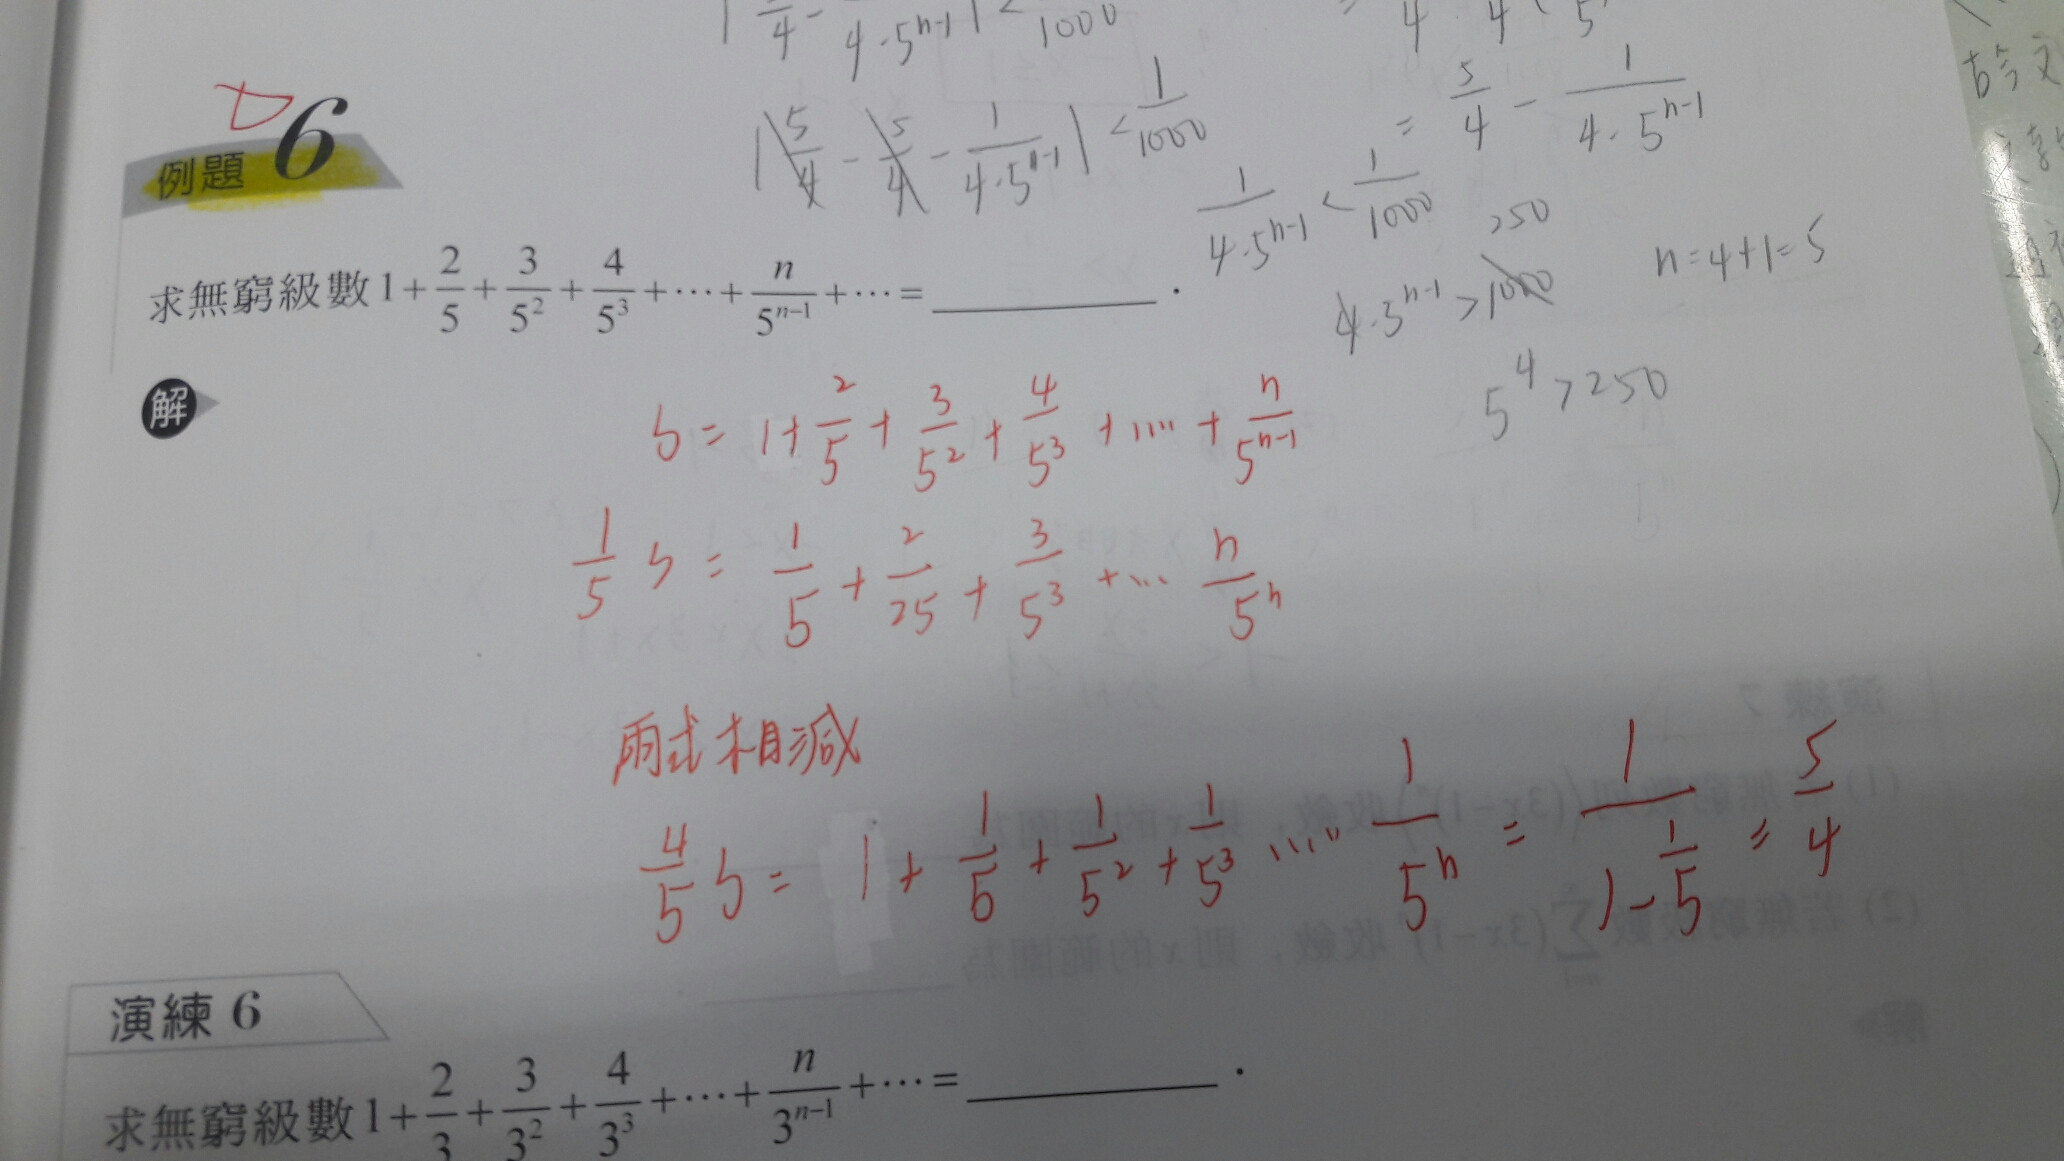 4 - 4·5^{n-1} | < 1000
|5/4 - 5/4 - 1/(4·5^{n-1})| < 1/1000
= 5/4 - 1/(4·5^{n-1})
1/(4·5^{n-1}) < 1/1000
250
4·5^{n-1} > 1000
n=4+1=5
5^4 > 250
例題 6
求無窮級數1+2/5+3/5^2+4/5^3+⋯+n/5^{n-1}+⋯=
解
S = 1+2/5+3/5^2+4/5^3+....+n/5^{n-1}
1/5 S = 1/5+2/25+3/5^3+... n/5^n
兩式相減
4/5 S = 1+1/5+1/5^2+1/5^3 ..... 1/5^n = 1/(1-1/5) = 5/4
演練 6
求無窮級數1+2/3+3/3^2+4/3^3+⋯+n/3^{n-1}+⋯=